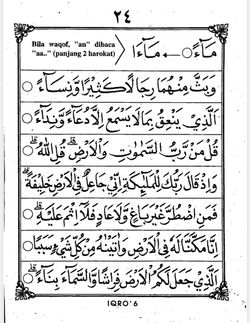 ٢٤
Bila waqof, "an" dibaca "aa.." (panjang 2 harokat)
مَآءً ← مَآءَا
وَبَثَّ مِنْهُمَا رِجَالًا كَثِيْرًا وَّنِسَآءً
الَّذِيْ يَنْعِقُ بِمَا لَا يَسْمَعُ اِلَّا دُعَآءً وَّنِدَآءً
قُلْ مَنْ رَّبُّ السَّمٰوٰتِ وَالْاَرْضِ قُلِ اللّٰهُ
وَاِذْ قَالَ رَبُّكَ لِلْمَلٰٓئِكَةِ اِنِّيْ جَاعِلٌ فِى الْاَرْضِ خَلِيْفَةً
فَمَنِ اضْطُرَّ غَيْرَ بَاغٍ وَّلَا عَادٍ فَلَآ اِثْمَ عَلَيْهِ
اِنَّا مَكَّنَّا لَهٗ فِى الْاَرْضِ وَاٰتَيْنٰهُ مِنْ كُلِّ شَيْءٍ سَبَبًا
الَّذِيْ جَعَلَ لَكُمُ الْاَرْضَ فِرَاشًا وَّالسَّمَآءَ بِنَآءً
IQRO' 6